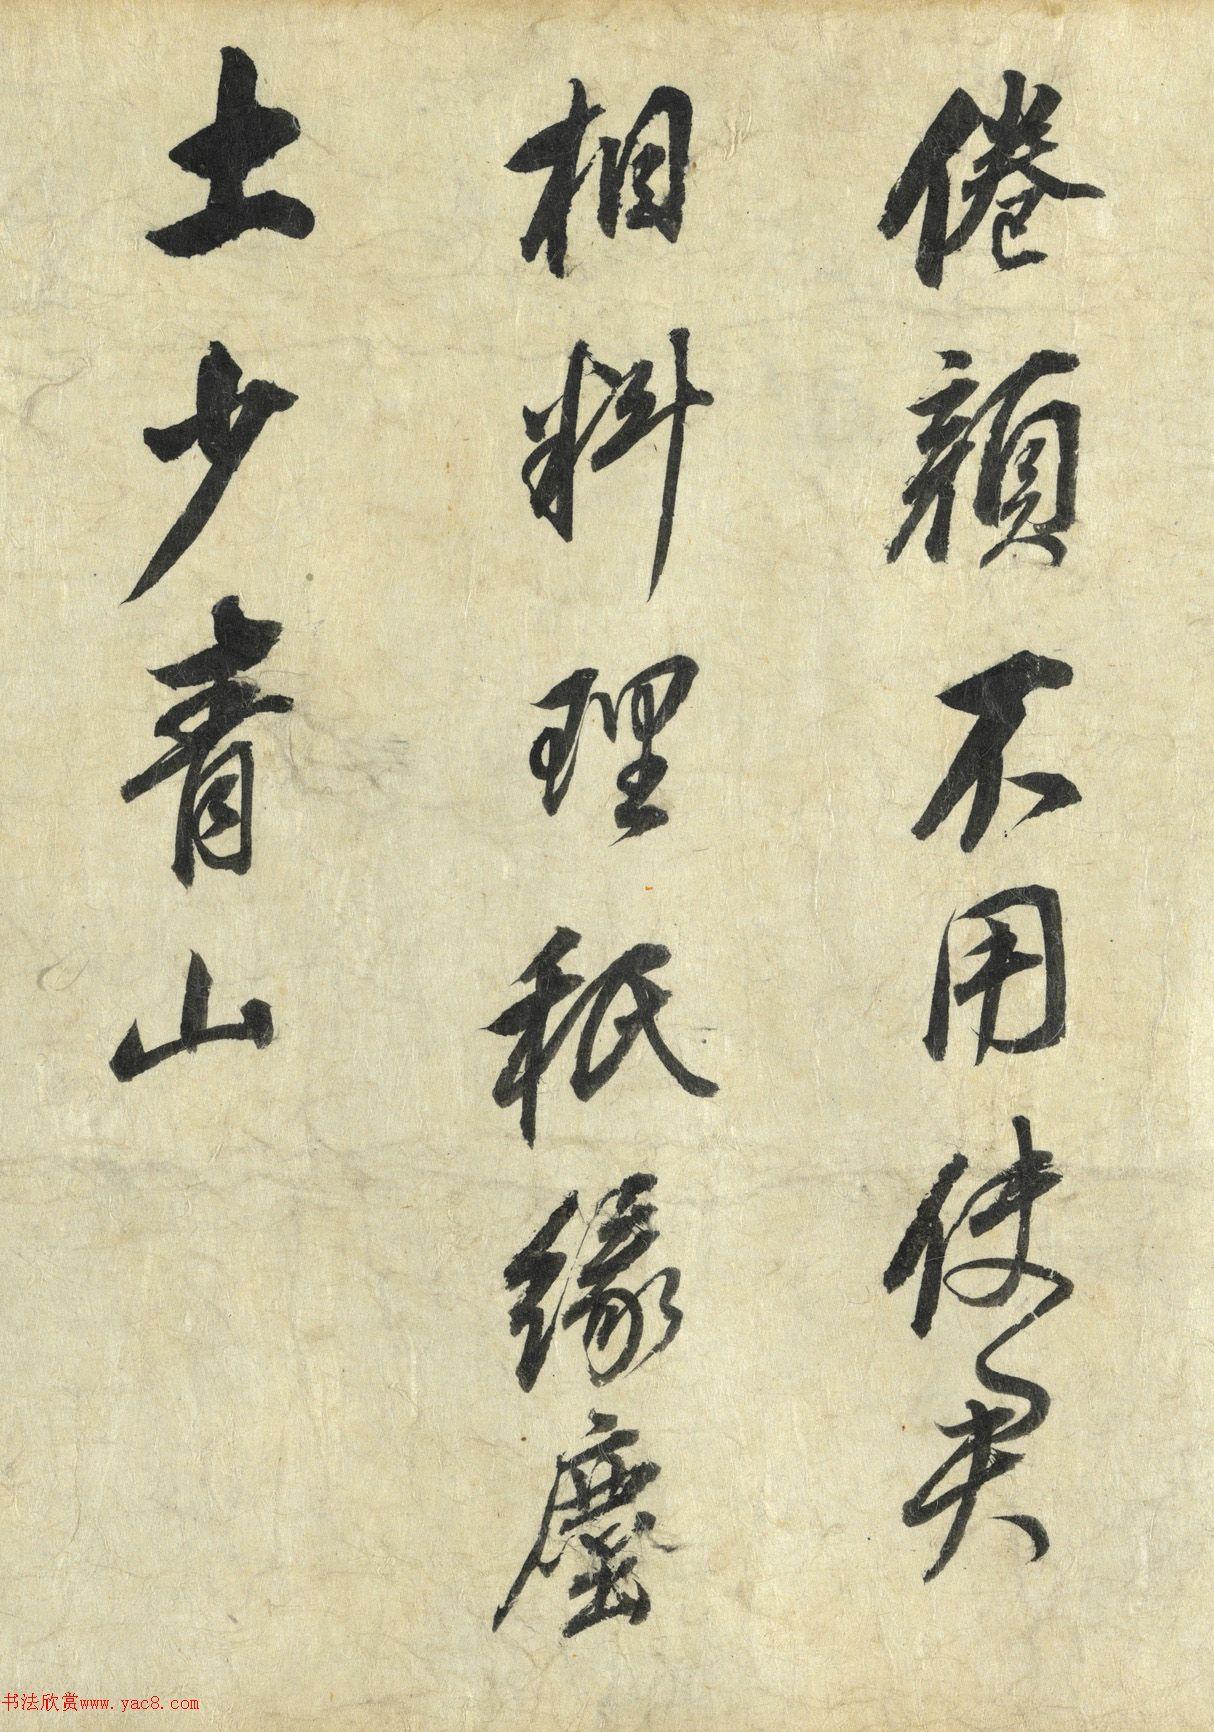 倦顏不用使
相料理秖緣塵
土少青山
书法欣赏www.yac8.com